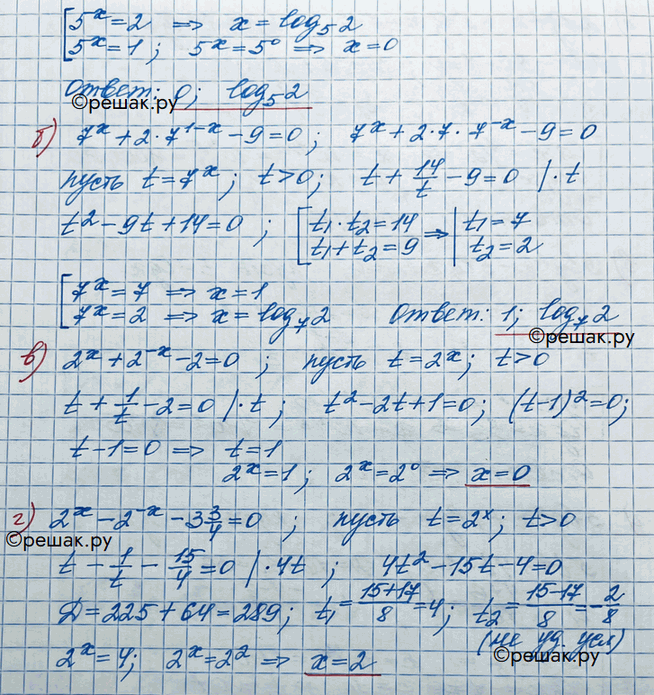 [5ˣ=2 ⇒ x=log₅2
[5ˣ=1; 5ˣ=5⁰ ⇒ x=0
Ответ: 0; log₅2
©решак.ру
б) 7ˣ+2·7¹⁻ˣ-9=0; 7ˣ+2·7·7⁻ˣ-9=0
пусть t=7ˣ; t>0; t+14/t-9=0 |·t
t²-9t+14=0; [t₁·t₂=14 ⇒ |t₁=7
[t₁+t₂=9 |t₂=2
[7ˣ=7 ⇒ x=1
[7ˣ=2 ⇒ x=log₇2 Ответ: 1; log₇2
©решак.ру
в) 2ˣ+2⁻ˣ-2=0; пусть t=2ˣ; t>0
t+1/t-2=0 |·t; t²-2t+1=0; (t-1)²=0;
t-1=0 ⇒ t=1
2ˣ=1; 2ˣ=2⁰ ⇒ x=0
г) 2ˣ-2⁻ˣ-3 3/4=0; пусть t=2ˣ; t>0
©решак.ру
t-1/t-15/4=0 |·4t; 4t²-15t-4=0
Д=225+64=289; t₁=(15+17)/8=4; t₂=(15-17)/8=-2/8
(не уд. усл)
2ˣ=4; 2ˣ=2² ⇒ x=2
©решак.ру